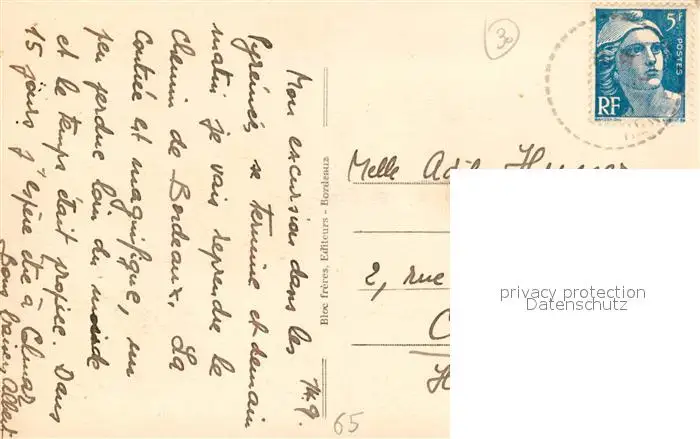 14.9.
Mon excursion dans les
Pyrénées se termine et demain
matin je vais reprendre le
chemin de Bordeaux. La
Contrée est magnifique, un
peu perdue loin du monde
et le temps était propice. Dans
15 jours j'espère être à Colmar
Bons baisers Albert
Bloc frères, Editeurs - Bordeaux
30
5F
POSTES
RF
Melle
2, rue
65
privacy protection
Datenschutz